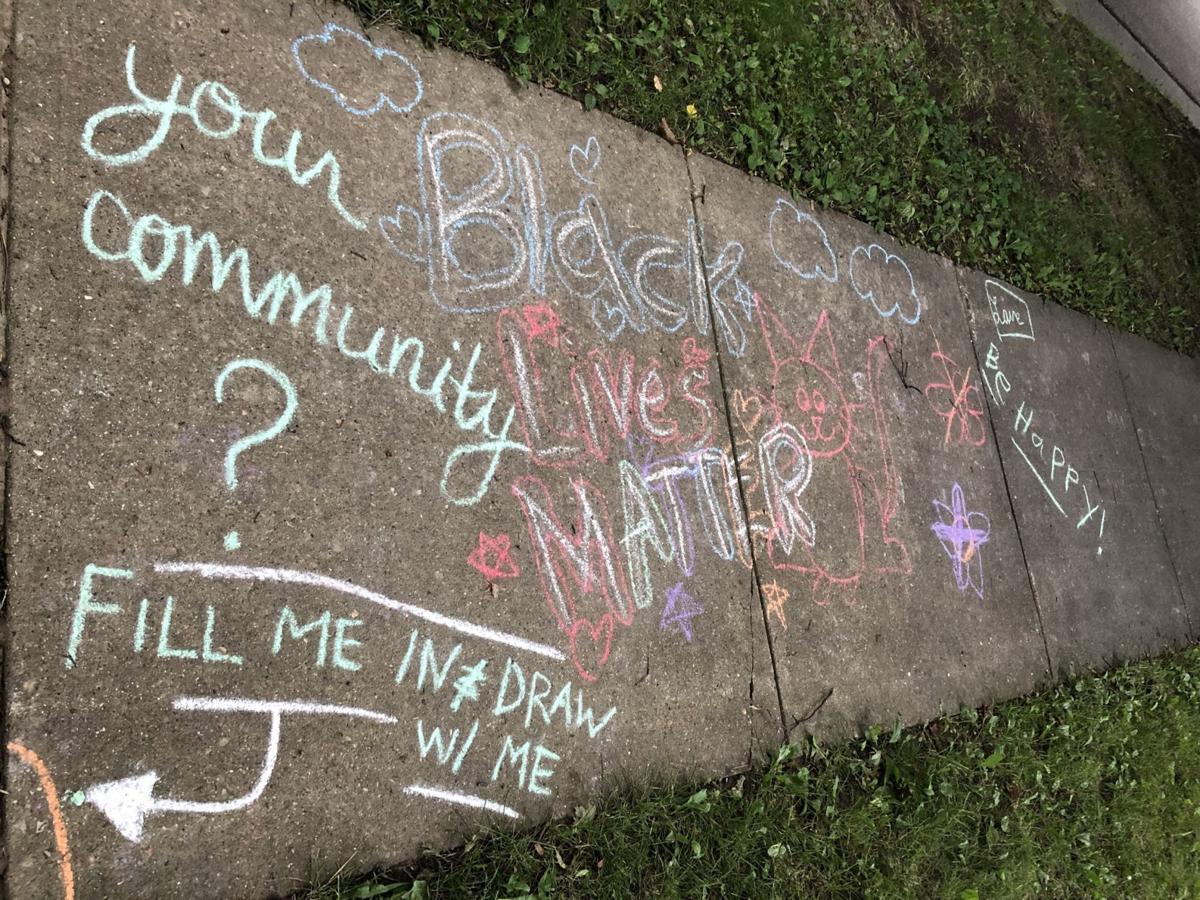 your
community
?
FILL ME IN & DRAW
W/ ME
Black
Lives
MATTER
BE
HAPPY!